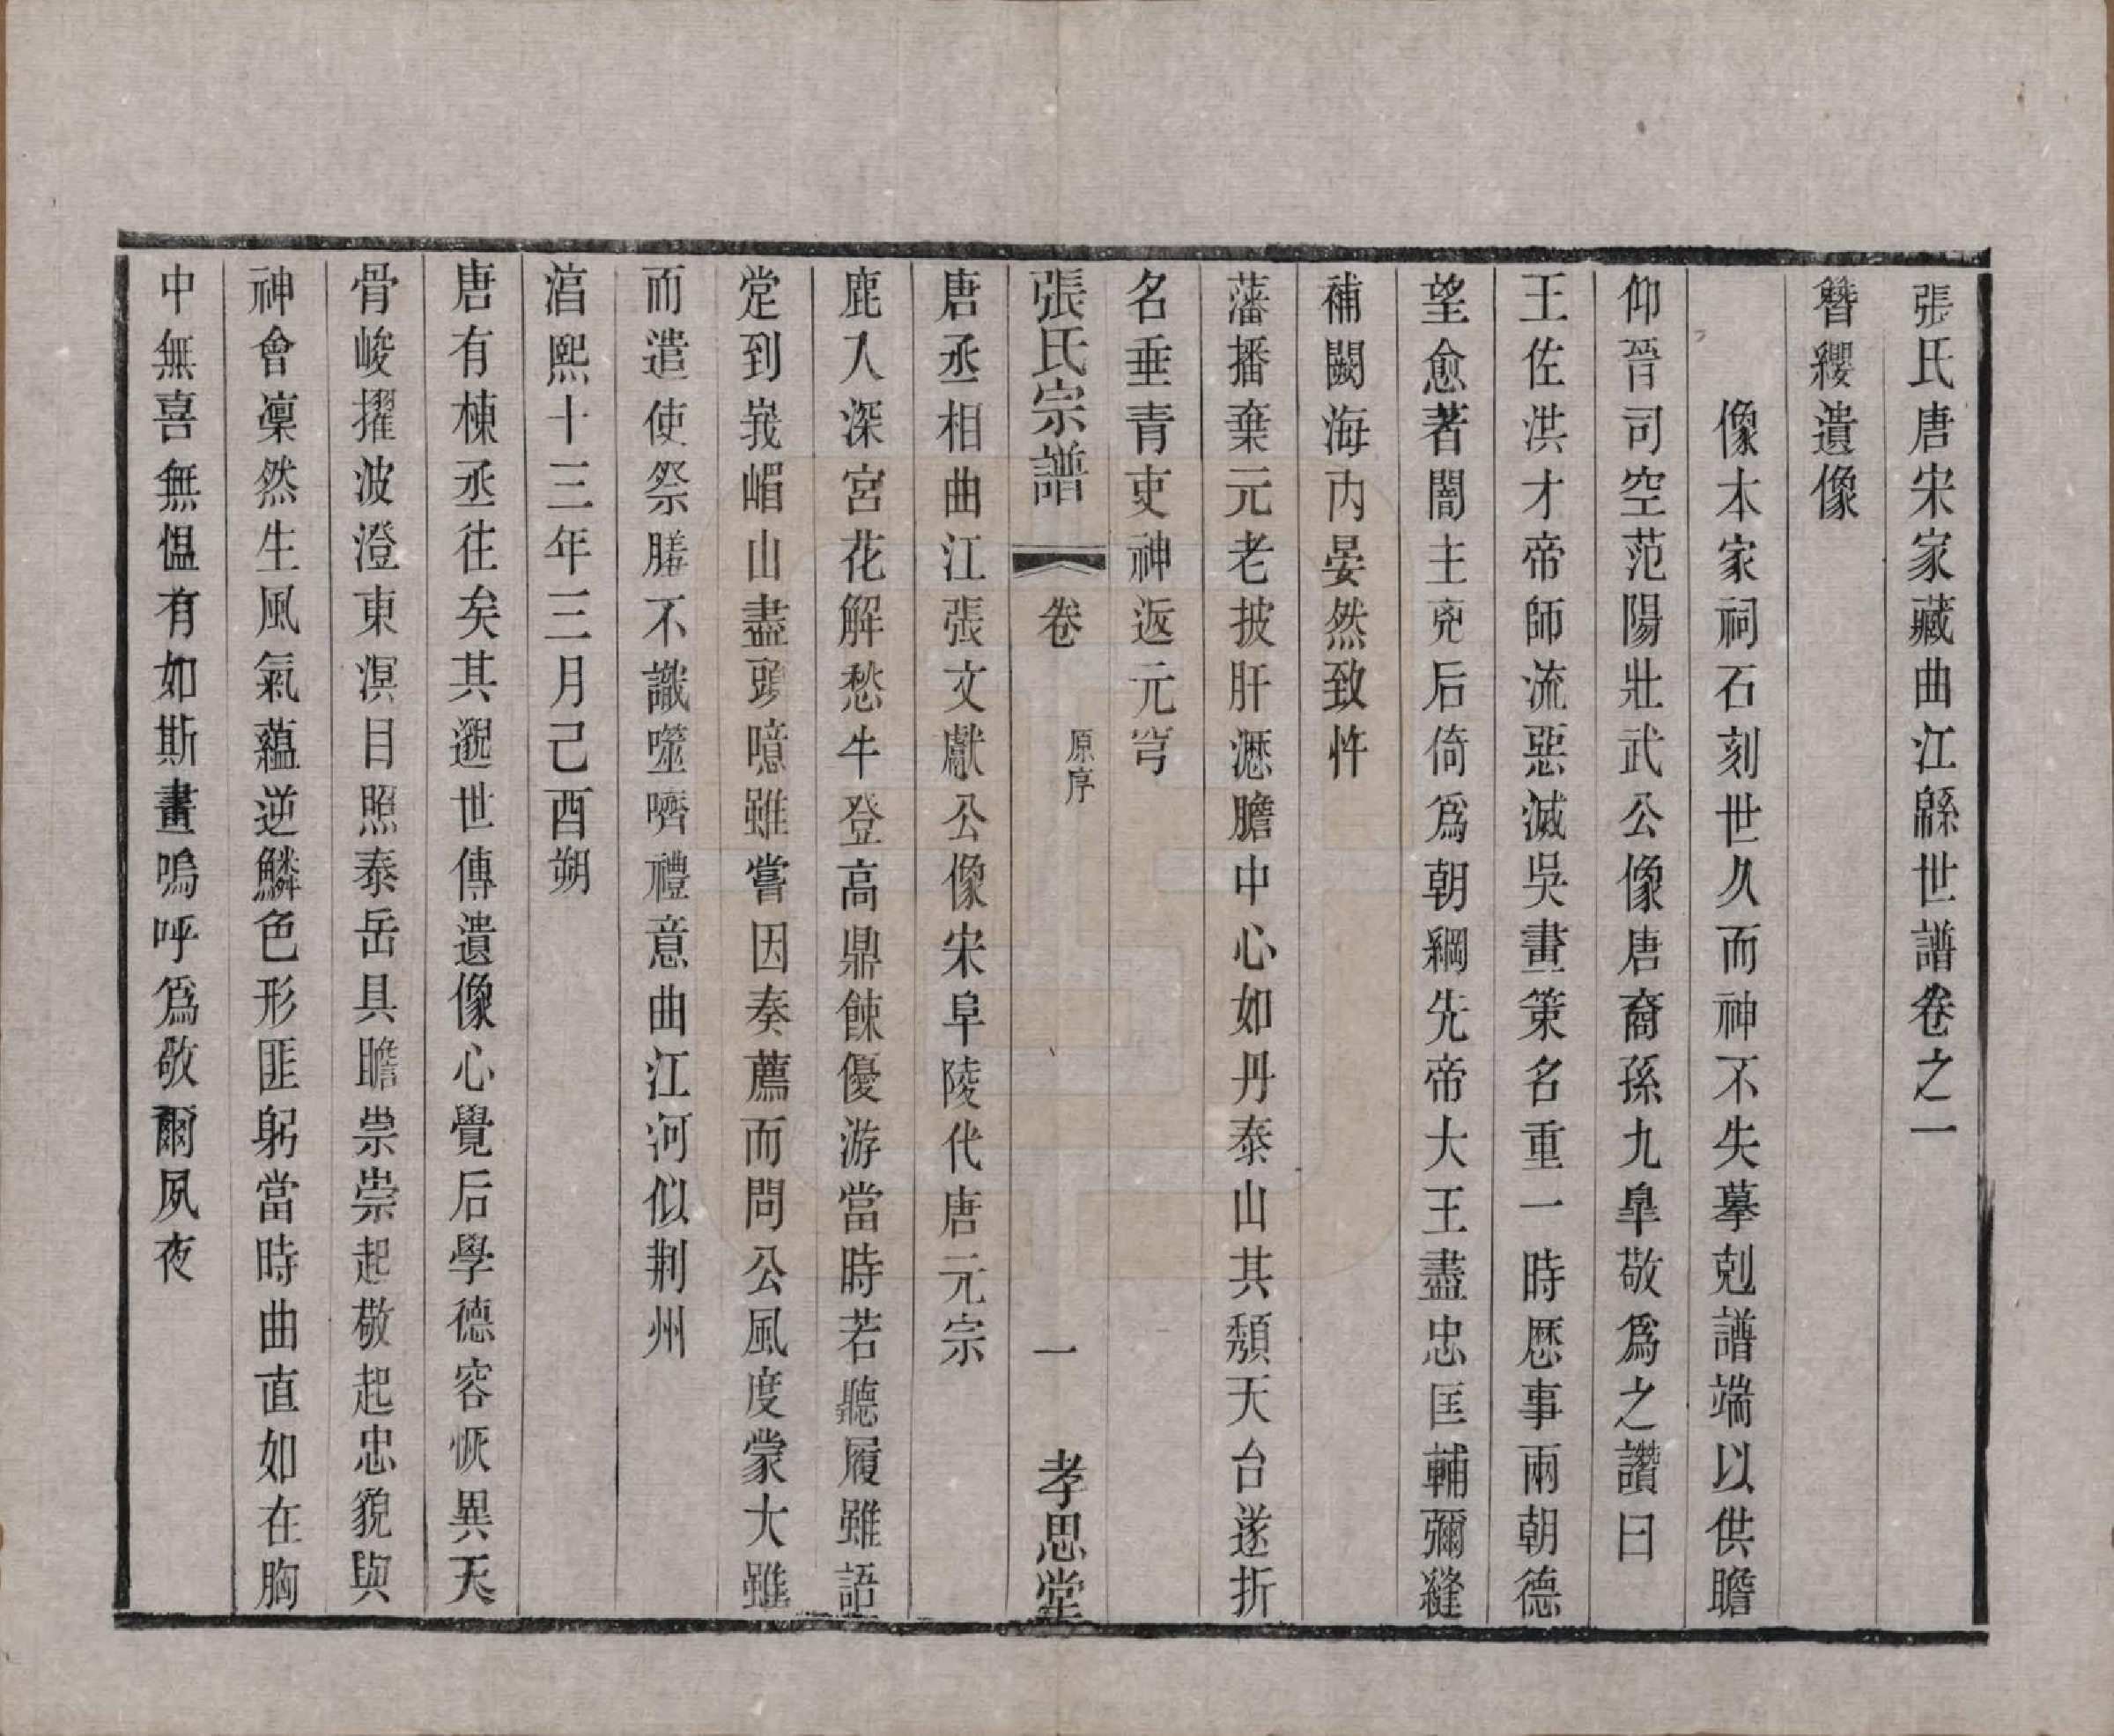 張氏唐宋家藏曲江緜世譜卷之一
簪纓遺像
像本家祠石刻世久而神不失摹剋譜端以供瞻
仰晉司空范陽壯武公像唐裔孫九臯敬爲之讚曰
王佐洪才帝師流惡滅吳畫策名重一時歷事兩朝德
望愈著闇主兇后倚爲朝綱先帝大王盡忠匡輔彌縫
補闕海內晏然致忤
藩播棄元老披肝瀝膽中心如丹泰山其頽天台遂折
名垂青吏神返元穹
張氏宗譜
卷
原序
一
孝思堂
唐丞相曲江張文獻公像宋阜陵代唐元宗
鹿人深宮花解愁牛登高鼎餗優游當時若聽履雖語
定到峩嵋山盡頭噫雖嘗因奏薦而問公風度蒙大雖
而遣使祭膳不識噬嚌禮意曲江河似荆州
淳熙十三年三月己酉朔
唐有棟丞往矣其邈世傳遺像心覺后學德容恢異天
骨峻擢波澄東溟目照泰岳具瞻祟崇起敬起忠貌與
神會凜然生風氣蘊逆鱗色形匪躬當時曲直如在胸
中無喜無慍有如斯畫嗚呼爲敬爾夙夜